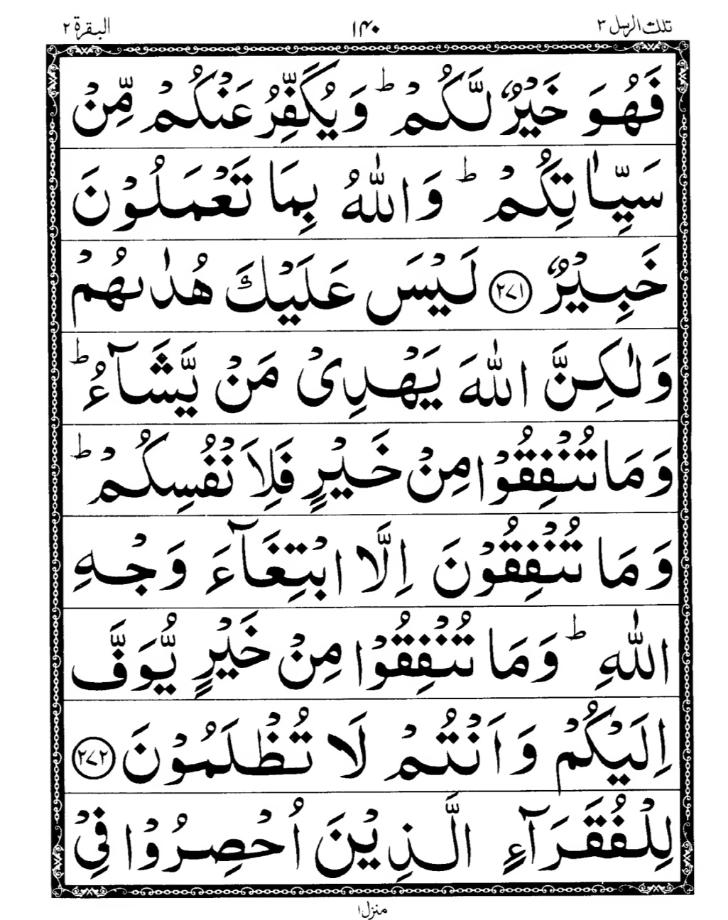 تلك الرسل ۳ ۱۴۰ البقرة ۲
فَهُوَ خَيْرٌ لَّكُمْ ؕ وَيُكَفِّرُ عَنْكُمْ مِّنْ
سَيِّاٰتِكُمْ ؕ وَاللّٰهُ بِمَا تَعْمَلُوْنَ
خَبِيْرٌ ﴿۲۷۱﴾ لَيْسَ عَلَيْكَ هُدٰىهُمْ
وَلٰكِنَّ اللّٰهَ يَهْدِىْ مَنْ يَّشَآءُ ؕ
وَمَا تُنْفِقُوْا مِنْ خَيْرٍ فَلِاَنْفُسِكُمْ ؕ
وَمَا تُنْفِقُوْنَ اِلَّا ابْتِغَآءَ وَجْهِ
اللّٰهِ ؕ وَمَا تُنْفِقُوْا مِنْ خَيْرٍ يُّوَفَّ
اِلَيْكُمْ وَاَنْتُمْ لَا تُظْلَمُوْنَ ﴿۲۷۲﴾
لِلْفُقَرَآءِ الَّذِيْنَ اُحْصِرُوْا فِىْ
منزل ۱